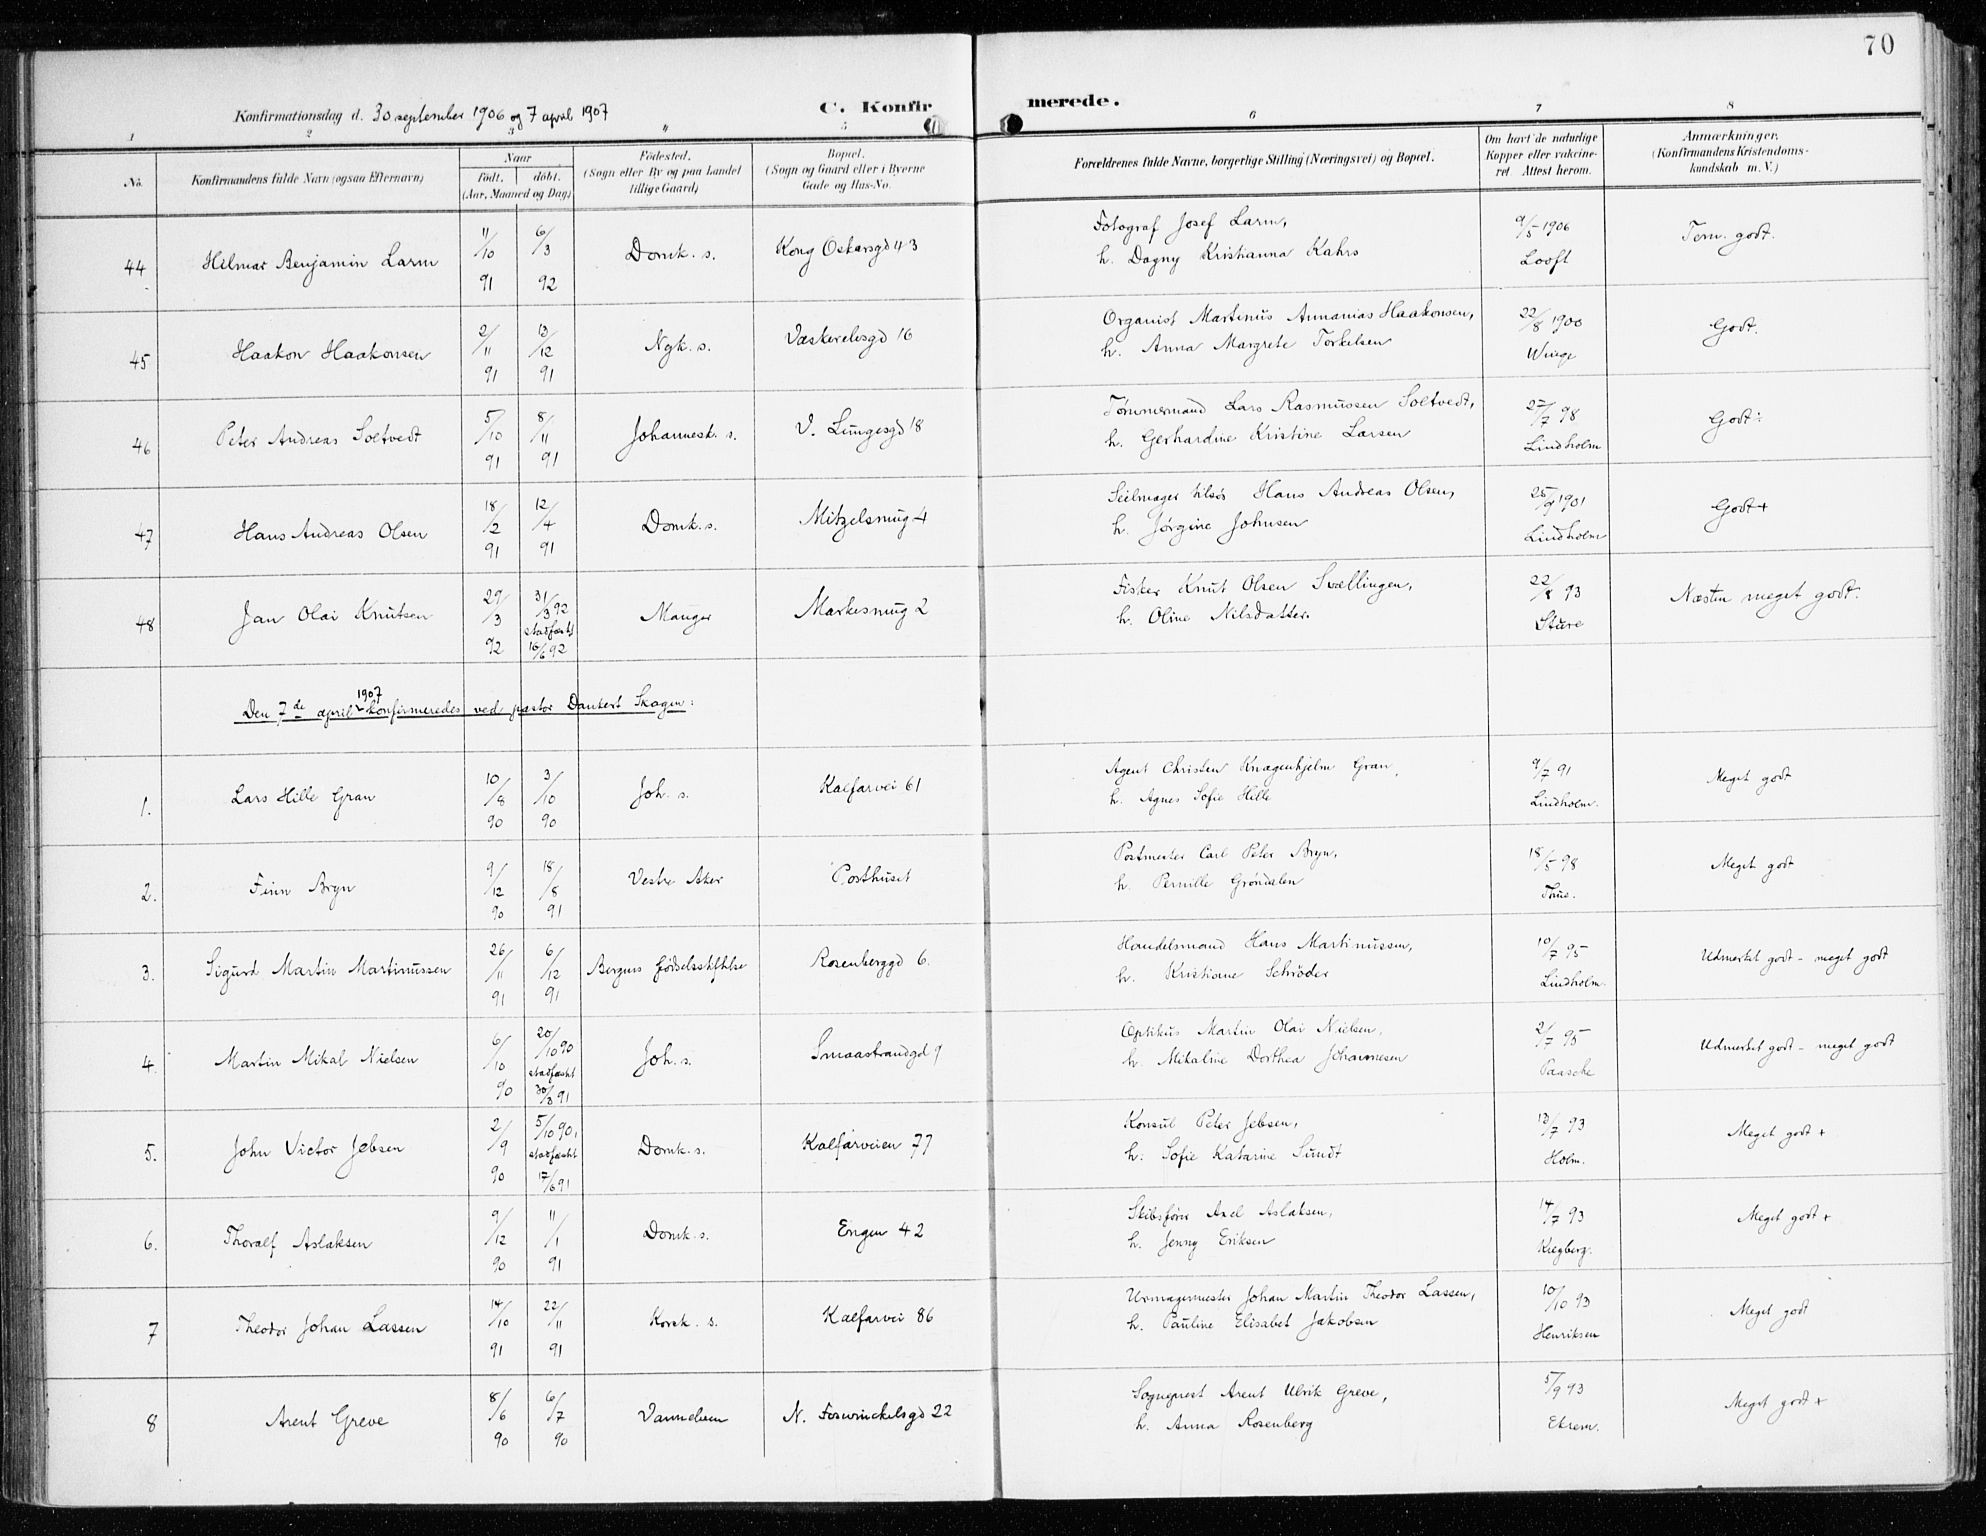 70
Konfirmationsdag d. 30 september 1906 og 7 april 1907
C. Konfirmerede.
1 2 3 4 5 6 7 8
No.
Konfirmandens fulde Navn (ogsaa Efternavn)
Naar
födt. döbt.
(Aar, Maaned og Dag)
Födested.
(Sogn eller By og paa Landet
tillige Gaard)
Bopæl.
(Sogn og Gaard eller i Byerne
Gade og Hus-No.
Forældrenes fulde Navne, borgerlige Stilling (Næringsvei) og Bopæl.
Om havt de naturlige
Kopper eller vakcine-
ret. Attest herom.
Anmærkninger.
(Konfirmandens Kristendoms-
kundskab m. V.)
44 Hilmar Benjamin Larm 11/10 91 6/3 92 Domk. s. Kong Oskarsgd 43 Fotograf Josef Larm, 9/5 1906 Tem. godt.
h. Dagny Kristianna Kahrs Looft
45 Haakon Haakonsen 2/11 91 13/12 91 Nyk. s. Vaskerelvsgd 16 Organist Martinus Annanias Haakonsen, 22/8 1900 Godt.
h. Anna Margrete Torkelsen Wiege
46 Peter Andreas Soltvedt 5/10 91 8/11 91 Johannesk. s. V. Lungesgd 18 Tömmermand Lars Rasmussen Soltvedt, 27/7 98 Godt÷
h. Gerhardine Kristine Larsen Lindholm
47 Hans Andreas Olsen 18/2 91 12/4 91 Domk. s. Mitzelsmug 4 Seilmager tilsös Hans Andreas Olsen, 25/9 1901 Godt+
h. Jørgine Johnsen Lindholm
48 Jan Olai Knutsen 29/3 92 31/3 92 stadfæst 16/6 92 Manger Markesmug 2 Fisker Knut Olsen Svellingen, 93 Næsten meget godt.
h. Oline Nilsdatter. Sture
Den 7de april 1907 konfirmeredes ved pastor Dankert Skagen:
1. Lars Hille Gran 10/8 90 3/10 90 Joh. s. Kalfarvei 61 Agent Christen Knagenhjelm Gran, 9/7 91 Meget godt
h. Agnes Sofie Hille Lindholm.
2. Finn Bryn 9/12 90 18/8 91 Vestre Aker Posthuset Postmester Carl Peter Bryn, 18/5 98 Meget godt
h. Pernille Gröndalen
3. Sigurd Martin Martinussen 26/11 91 6/12 91 Bergens födselsstiftelse Rosenberggd 6. Handelsmand Hans Martinussen, 10/7 95 Udmerket godt – meget godt
h. Kristiane Schröder Lindholm.
4. Martin Mikal Nielsen 6/10 90 20/10 90 stadfæst 30/3 91 Joh. s. Smaastrandgd 9 Optikus Martin Olai Nielsen, 21/7 95 Udmerket godt – meget godt
h. Mikaline Dorthea Johannesen Paasche
5. John Victor Jebsen 2/9 90 5/10 90, stadfæst 17/6 91 Domk. s. Kalfarveien 77 Konsul Peter Jebsen, 13/7 93 Meget godt +
h. Sofie Katarine Sundt Holm.
6. Thoralf Aslaksen 9/12 90 11/1 91 Domk. s. Engen 42 Skibsförer Axel Aslaksen, 14/7 93 Meget godt +
h. Jenny Eriksen Kregberg.
7 Theodor Johan Lassen 14/10 91 22/11 91 Korsk. s. Kalfarvei 86 Urmagermester Johan Martin Theodor Lassen, 10/10 93 Meget godt
h. Pauline Elisabet Jakobsen Henriksen
8 Arent Greve 8/6 90 6/7 90 Vannelven N. Foswinckelsgd 22 Sogneprest Arent Ulrik Greve, 5/9 93 Meget godt +
h. Anna Rosenberg Ekrem.